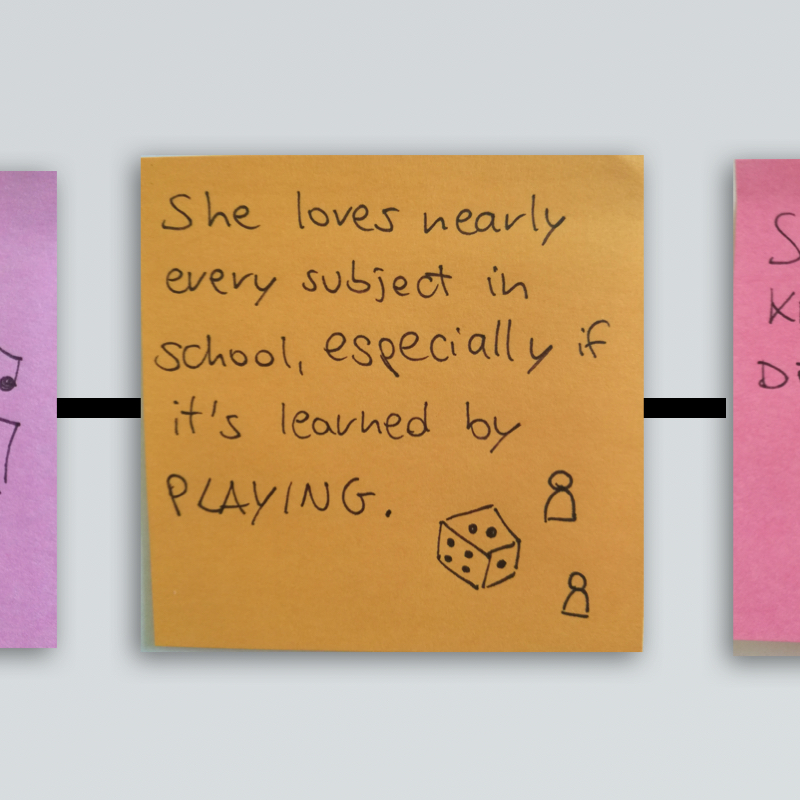 She loves nearly
every subject in
school, especially if
it's learned by
PLAYING.